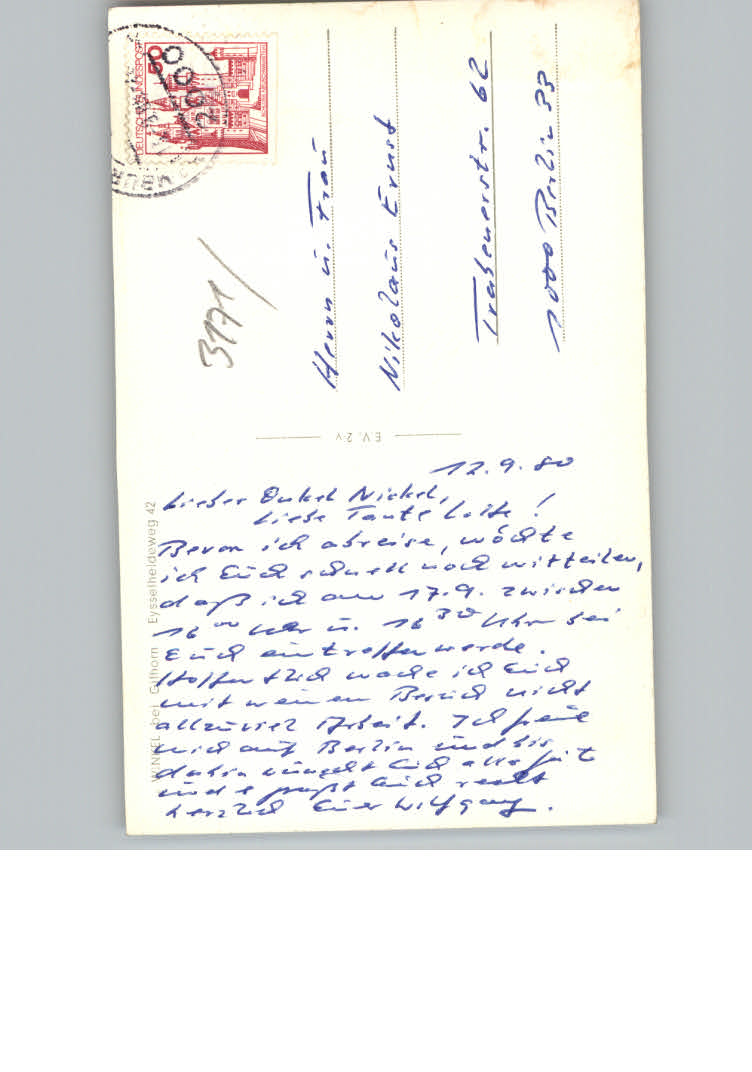 12.9.80
Lieber Onkel Nickel,
liebe Tante Lotte!
Bevor ich abreise, möchte
ich Euch schnell noch mitteilen,
daß ich am 17.9. zwischen
16⁰⁰ Uhr u. 16³⁰ Uhr bei
Euch eintreffen werde.
Hoffentlich mache ich Euch
mit meinem Besuch nicht
allzuviel Arbeit. Ich freue
mich auf Berlin und bis
dahin wünscht Euch alles Gute
und grüßt Euch recht
herzlich Euer Wolfgang.
WINKEL bei Gifhorn Eysselheideweg 42
E.V. 2·v
3171/
DEUTSCHE BUNDESPOST
50
Herrn u. Frau
Nikolaus Ernst
Trabenerstr. 62
1000 Berlin 33